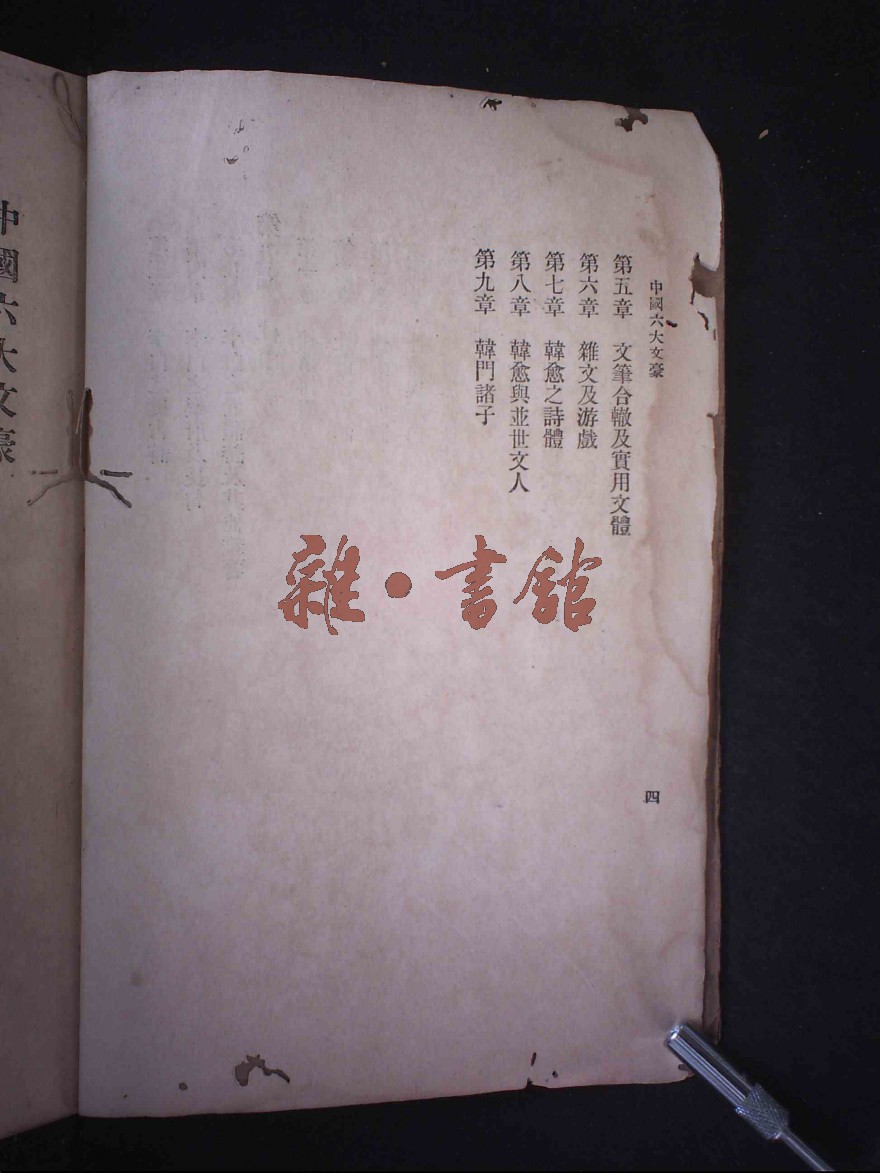 中國六大文豪
第五章　文筆合轍及實用文體
第六章　雜文及游戲
第七章　韓愈之詩體
第八章　韓愈與並世文人
第九章　韓門諸子
四
雜・書館
中國六大文豪